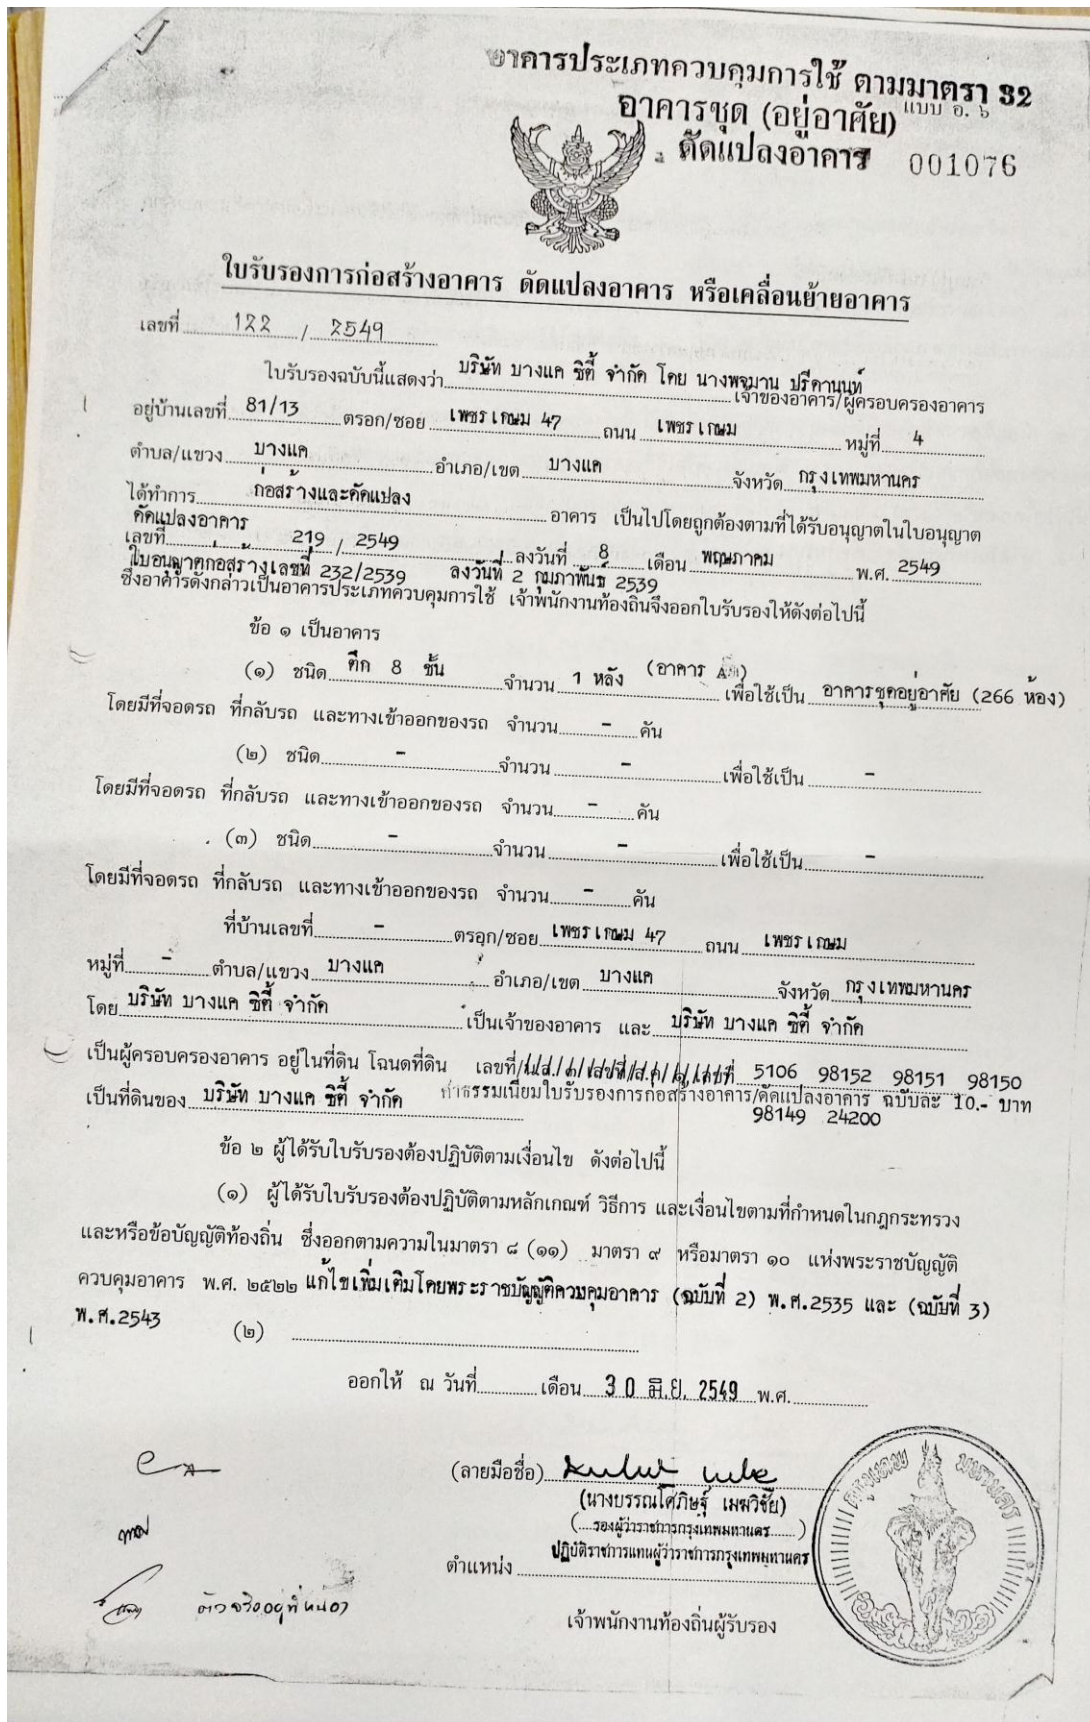 อาคารประเภทควบคุมการใช้ ตามมาตรา 32
แบบ อ. ๖
อาคารชุด (อยู่อาศัย)
ดัดแปลงอาคาร 001076
ใบรับรองการก่อสร้างอาคาร ดัดแปลงอาคาร หรือเคลื่อนย้ายอาคาร
เลขที่ 122 / 2549
ใบรับรองฉบับนี้แสดงว่า บริษัท บางแค ซิตี้ จำกัด โดย นางพจมาน ปรีดานนท์ เจ้าของอาคาร/ผู้ครอบครองอาคาร
อยู่บ้านเลขที่ 81/13 ตรอก/ซอย เพชรเกษม 47 ถนน เพชรเกษม หมู่ที่ 4
ตำบล/แขวง บางแค อำเภอ/เขต บางแค จังหวัด กรุงเทพมหานคร
ได้ทำการ ก่อสร้างและดัดแปลง อาคาร เป็นไปโดยถูกต้องตามที่ได้รับอนุญาตในใบอนุญาต
ดัดแปลงอาคาร
เลขที่ 219 / 2549 ลงวันที่ 8 เดือน พฤษภาคม พ.ศ. 2549
ใบอนุญาตก่อสร้างเลขที่ 232/2539 ลงวันที่ 2 กุมภาพันธ์ 2539
ซึ่งอาคารดังกล่าวเป็นอาคารประเภทควบคุมการใช้ เจ้าพนักงานท้องถิ่นจึงออกใบรับรองให้ดังต่อไปนี้
ข้อ ๑ เป็นอาคาร
(๑) ชนิด ตึก 8 ชั้น จำนวน 1 หลัง (อาคาร A) เพื่อใช้เป็น อาคารชุดอยู่อาศัย (266 ห้อง)
โดยมีที่จอดรถ ที่กลับรถ และทางเข้าออกของรถ จำนวน - คัน
(๒) ชนิด - จำนวน - เพื่อใช้เป็น -
โดยมีที่จอดรถ ที่กลับรถ และทางเข้าออกของรถ จำนวน - คัน
(๓) ชนิด - จำนวน - เพื่อใช้เป็น -
โดยมีที่จอดรถ ที่กลับรถ และทางเข้าออกของรถ จำนวน - คัน
ที่บ้านเลขที่ - ตรอก/ซอย เพชรเกษม 47 ถนน เพชรเกษม
หมู่ที่ - ตำบล/แขวง บางแค อำเภอ/เขต บางแค จังหวัด กรุงเทพมหานคร
โดย บริษัท บางแค ซิตี้ จำกัด เป็นเจ้าของอาคาร และ บริษัท บางแค ซิตี้ จำกัด
เป็นผู้ครอบครองอาคาร อยู่ในที่ดิน โฉนดที่ดิน เลขที่ 5106 98152 98151 98150
เป็นที่ดินของ บริษัท บางแค ซิตี้ จำกัด ค่าธรรมเนียมใบรับรองการก่อสร้างอาคาร/ดัดแปลงอาคาร ฉบับละ 10.- บาท
98149 24200
ข้อ ๒ ผู้ได้รับใบรับรองต้องปฏิบัติตามเงื่อนไข ดังต่อไปนี้
(๑) ผู้ได้รับใบรับรองต้องปฏิบัติตามหลักเกณฑ์ วิธีการ และเงื่อนไขตามที่กำหนดในกฎกระทรวง
และหรือข้อบัญญัติท้องถิ่น ซึ่งออกตามความในมาตรา ๘ (๑๑) มาตรา ๙ หรือมาตรา ๑๐ แห่งพระราชบัญญัติ
ควบคุมอาคาร พ.ศ. ๒๕๒๒ แก้ไขเพิ่มเติมโดยพระราชบัญญัติควบคุมอาคาร (ฉบับที่ 2) พ.ศ.2535 และ (ฉบับที่ 3)
พ.ศ.2543
(๒)
ออกให้ ณ วันที่ เดือน 30 มิ.ย. 2549 พ.ศ.
(ลายมือชื่อ)
(นางบรรณโศภิษฐ์ เมฆวิชัย)
(รองผู้ว่าราชการกรุงเทพมหานคร)
ปฏิบัติราชการแทนผู้ว่าราชการกรุงเทพมหานคร
ตำแหน่ง
เจ้าพนักงานท้องถิ่นผู้รับรอง
กรุงเทพมหานคร
ตัวจริงอยู่ที่